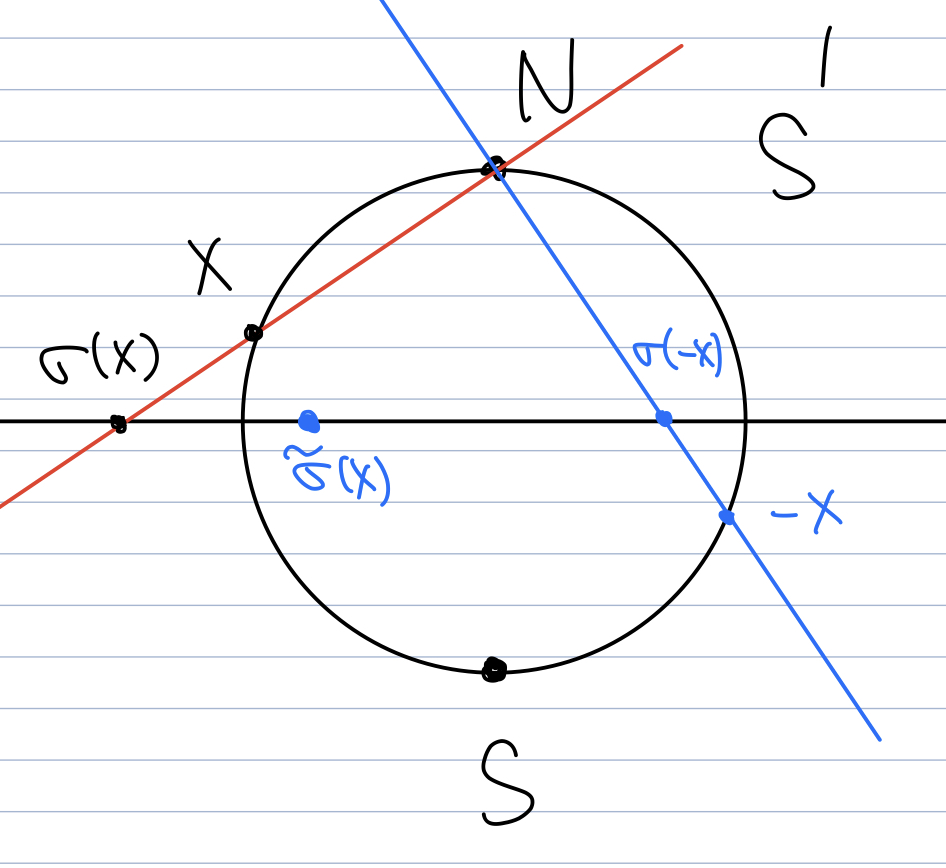 N
S¹
X
σ(X)
σ(-X)
σ̃(X)
-X
S